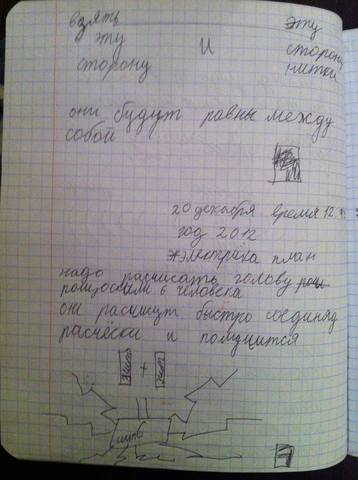 взять эту сторону и эту сторону нитки
они будут равны между
собой
20 декабря время 12
год 2012
электрика план
надо расчисать голову
6 человека
они расчишут быстро
расчёски и полуцится